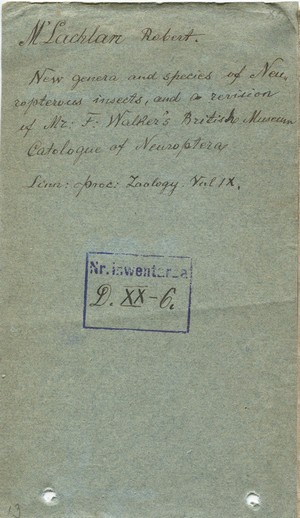 McLachlan Robert.
New genera and species of Neu,
ropterous insects, and a revision
of Mr: F: Walker's British Museum
Catologue of Neuroptera,
Linn: proc: Zoology. Vol IX.
Nr. inwentarza
D. XX-6.
13